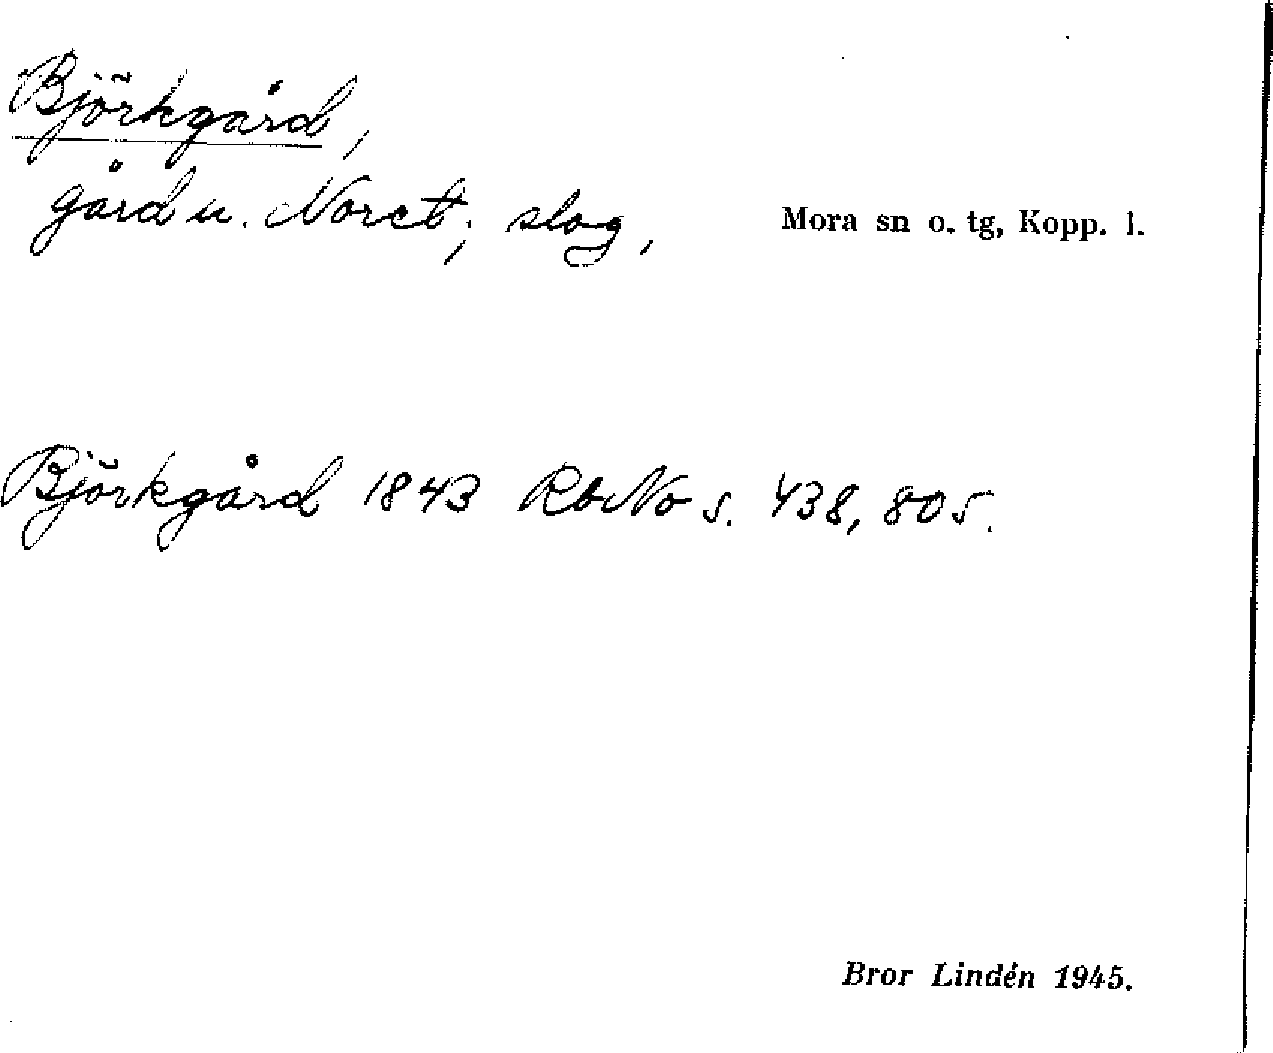 Björkgård,
gård u. Noret; slog,
Mora sn o. tg, Kopp. l.
Björkgård 1843 RbNo s. 438, 805.
Bror Lindén 1945.